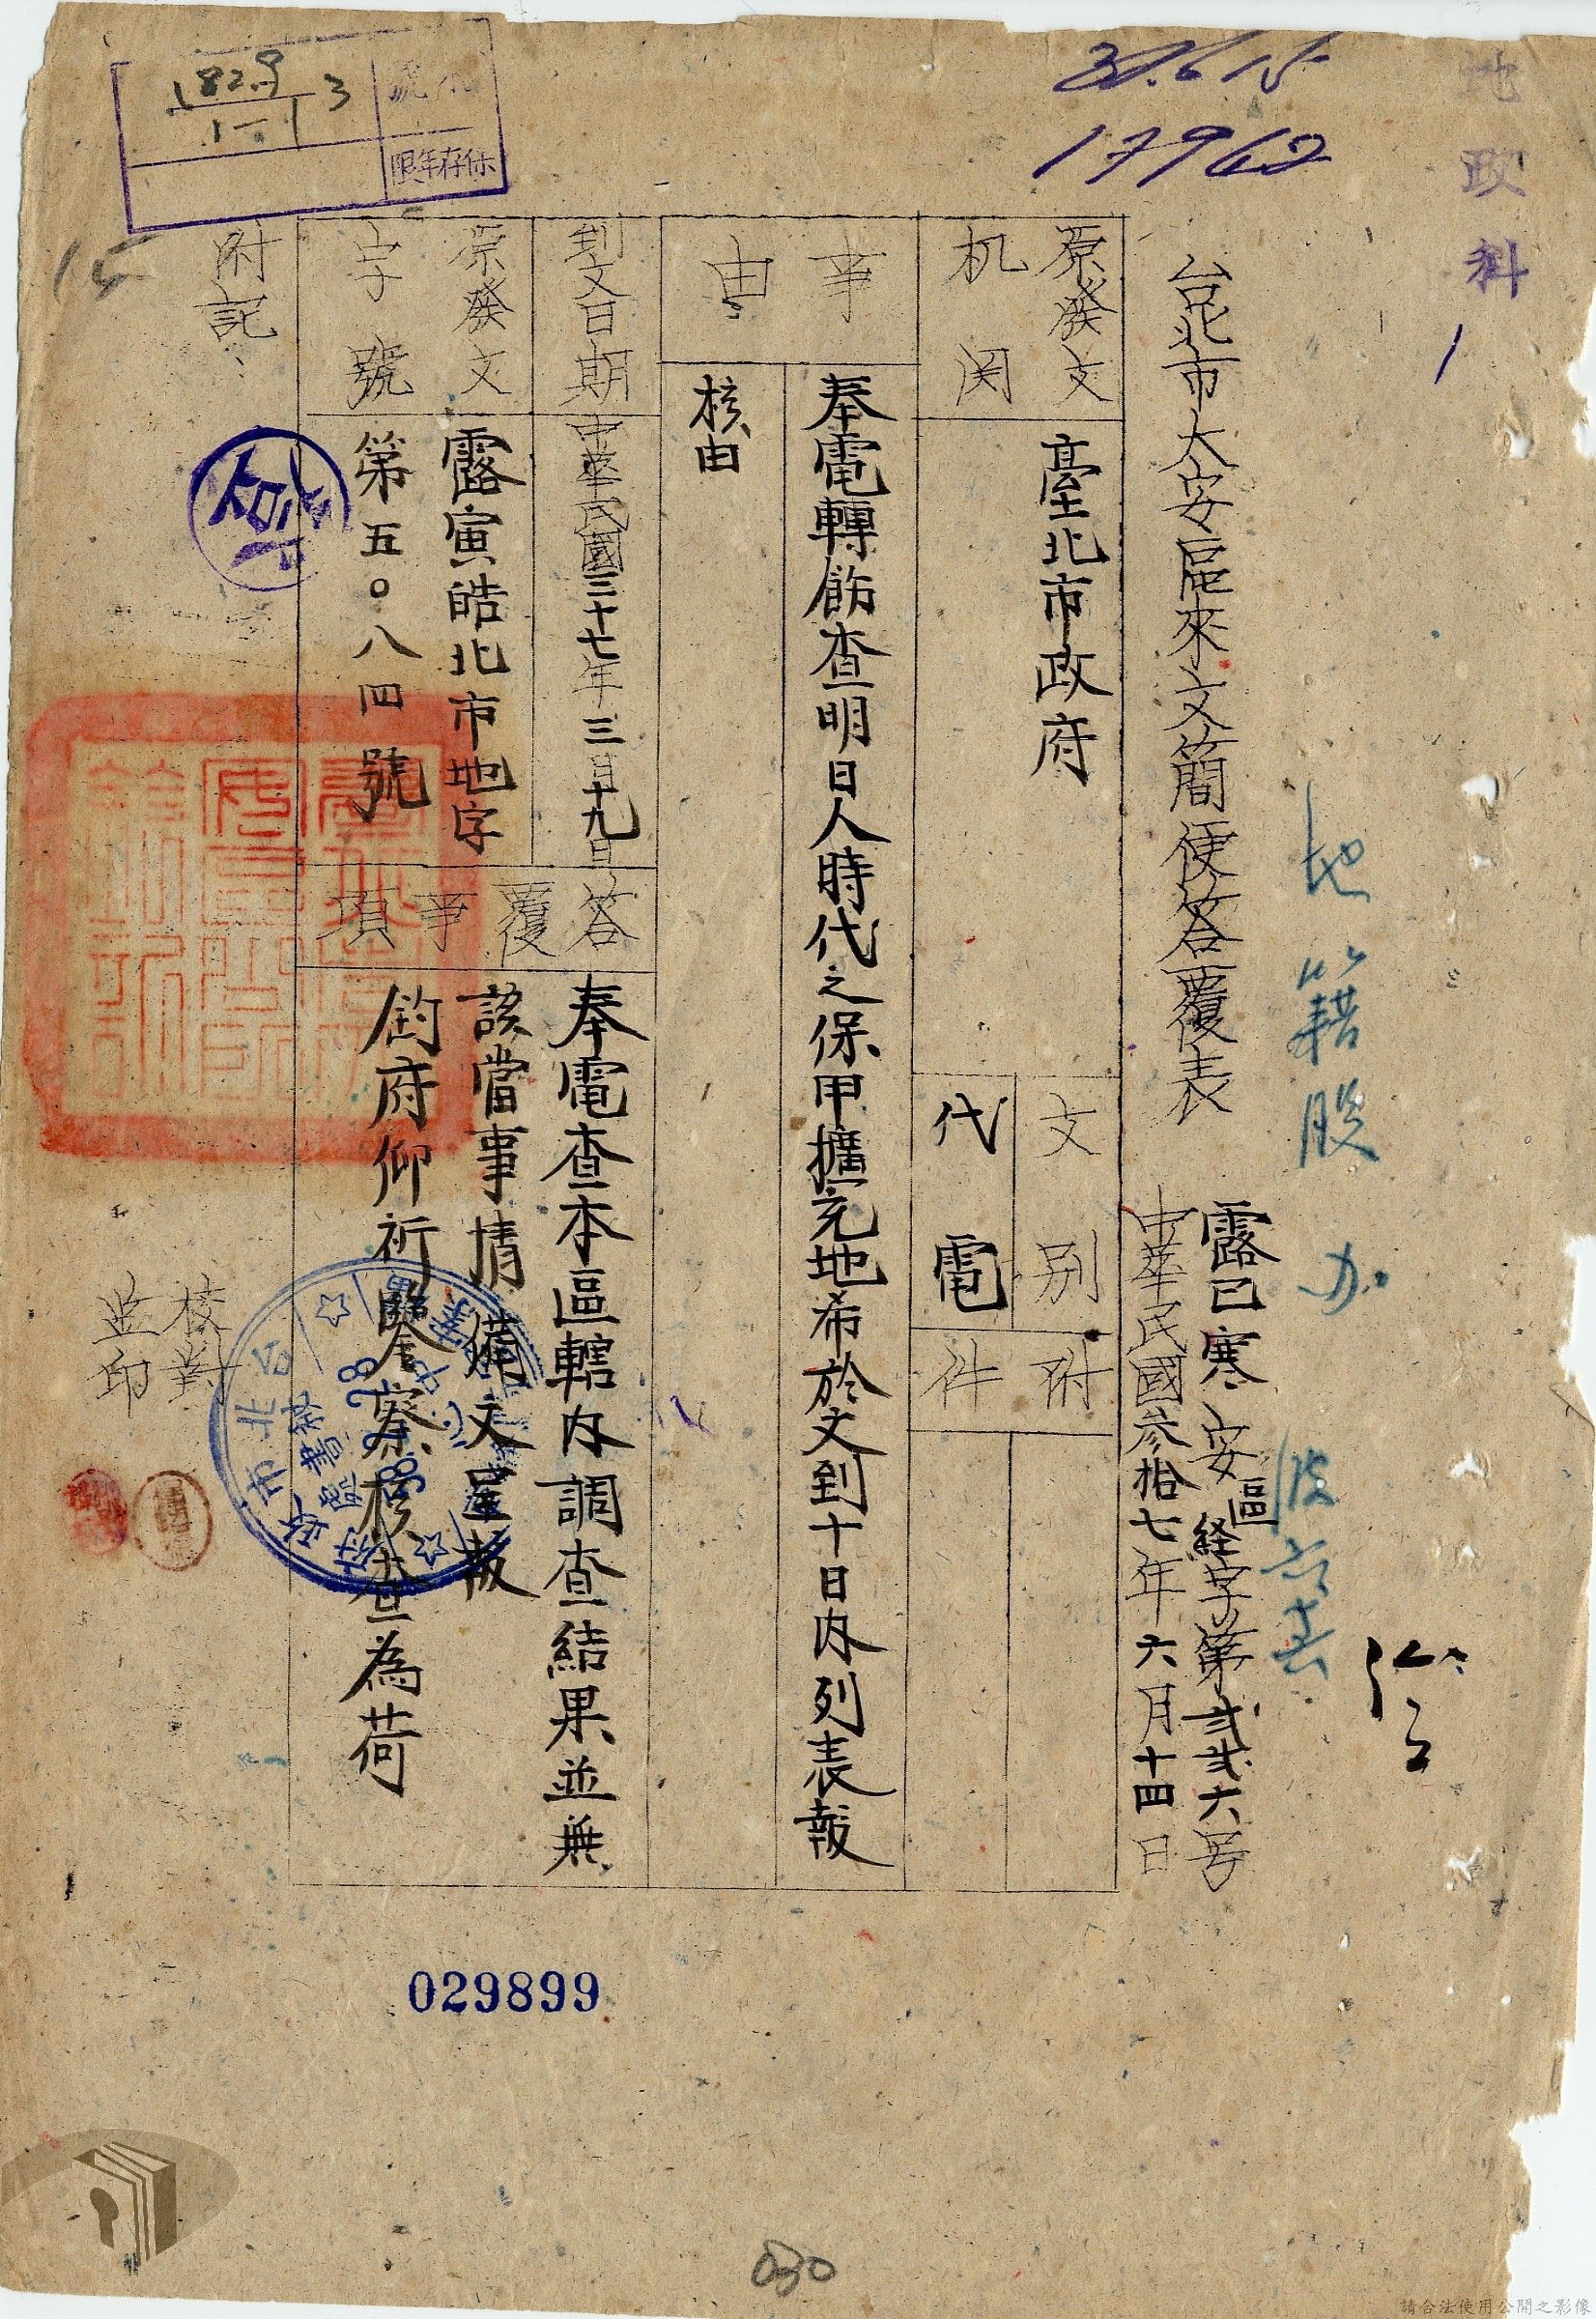 地政科
37.6.15
17962
地籍股 办
台北市大安區來文簡便答覆表
露已寒安區経字第弍弍六号
中華民國参拾七年六月十四日
原發文机関
臺北市政府
文別
代電
附件
事由
奉電轉飭查明日人時代之保甲擴充地希於文到十日內列表報
核由
到文日期
中華民國三十七年三月十九日
原發文字號
露寅皓北市地字
第五〇八四號
答覆事項
奉電查本區轄內調查結果並無
該當事情備文呈報
鈞府仰祈鑒察核查為荷
附記：
校對
监印
號
保存年限
1829
1-1
3
15
台北市政府
38 2 28
029899
030
請合法使用公開之影像